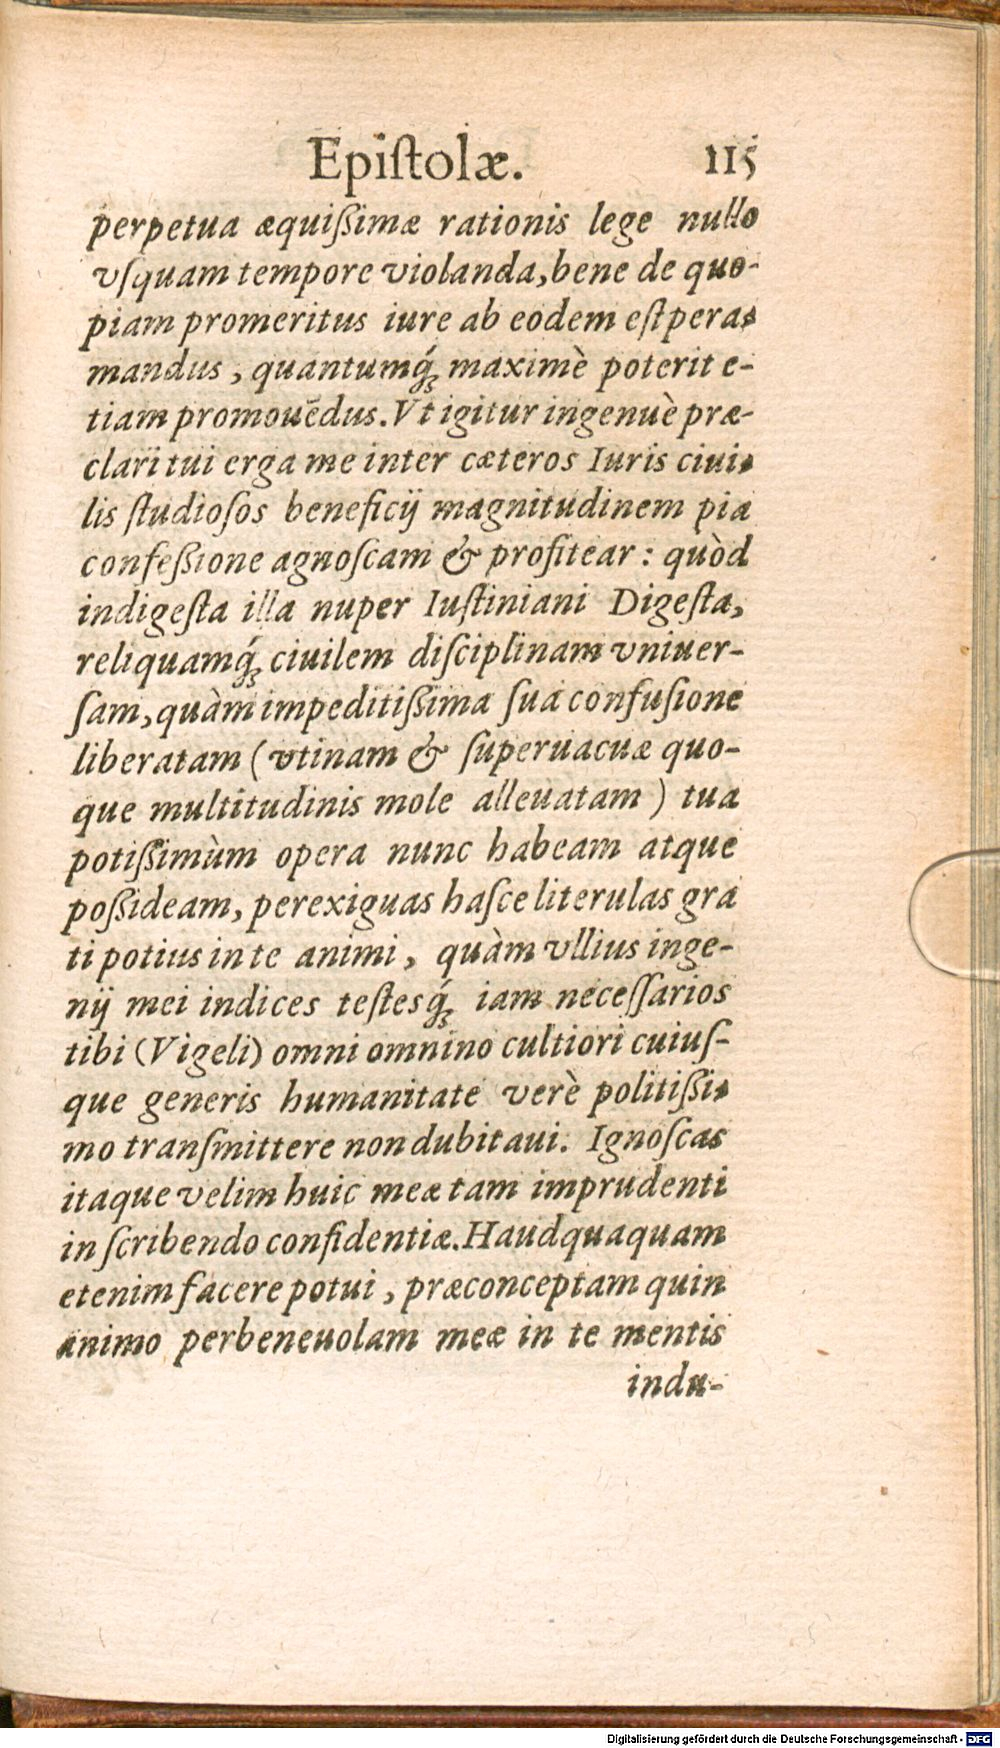 Epiſtolæ. 115
perpetua æquiſsimæ rationis lege nullo
vſquam tempore violanda, bene de quo-
piam promeritus iure ab eodem eſt pera-
mandus, quantumq́ꝫ maximè poterit e-
tiam promouēdus. Vt igitur ingenuè præ-
clari tui erga me inter cæteros Iuris ciui-
lis ſtudioſos beneficij magnitudinem pia
confeſsione agnoſcam & profitear: quòd
indigeſta illa nuper Iuſtiniani Digeſta,
reliquamq́ꝫ ciuilem diſciplinam vniuer-
ſam, quàm impeditiſsima ſua confuſione
liberatam (vtinam & ſuperuacuæ quo-
que multitudinis mole alleuatam) tua
potiſsimùm opera nunc habeam atque
poſsideam, perexiguas haſce literulas gra
ti potius in te animi, quàm vllius inge-
nij mei indices teſtesq́ꝫ iam neceſſarios
tibi (Vigeli) omni omnino cultiori cuiuſ-
que generis humanitate verè politiſsi-
mo tranſmittere non dubitaui. Ignoſcas
itaque velim huic meæ tam imprudenti
in ſcribendo confidentiæ. Haudquaquam
etenim facere potui, præconceptam quin
animo perbeneuolam meæ in te mentis
indu-
Digitalisierung gefördert durch die Deutsche Forschungsgemeinschaft - DFG